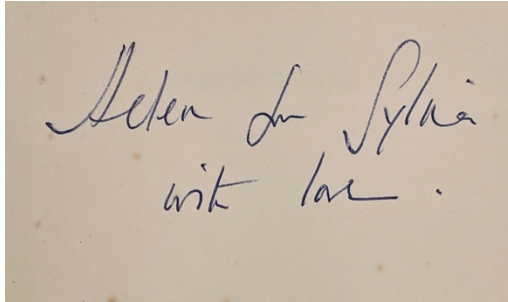 Helen for Sylvia
with love.